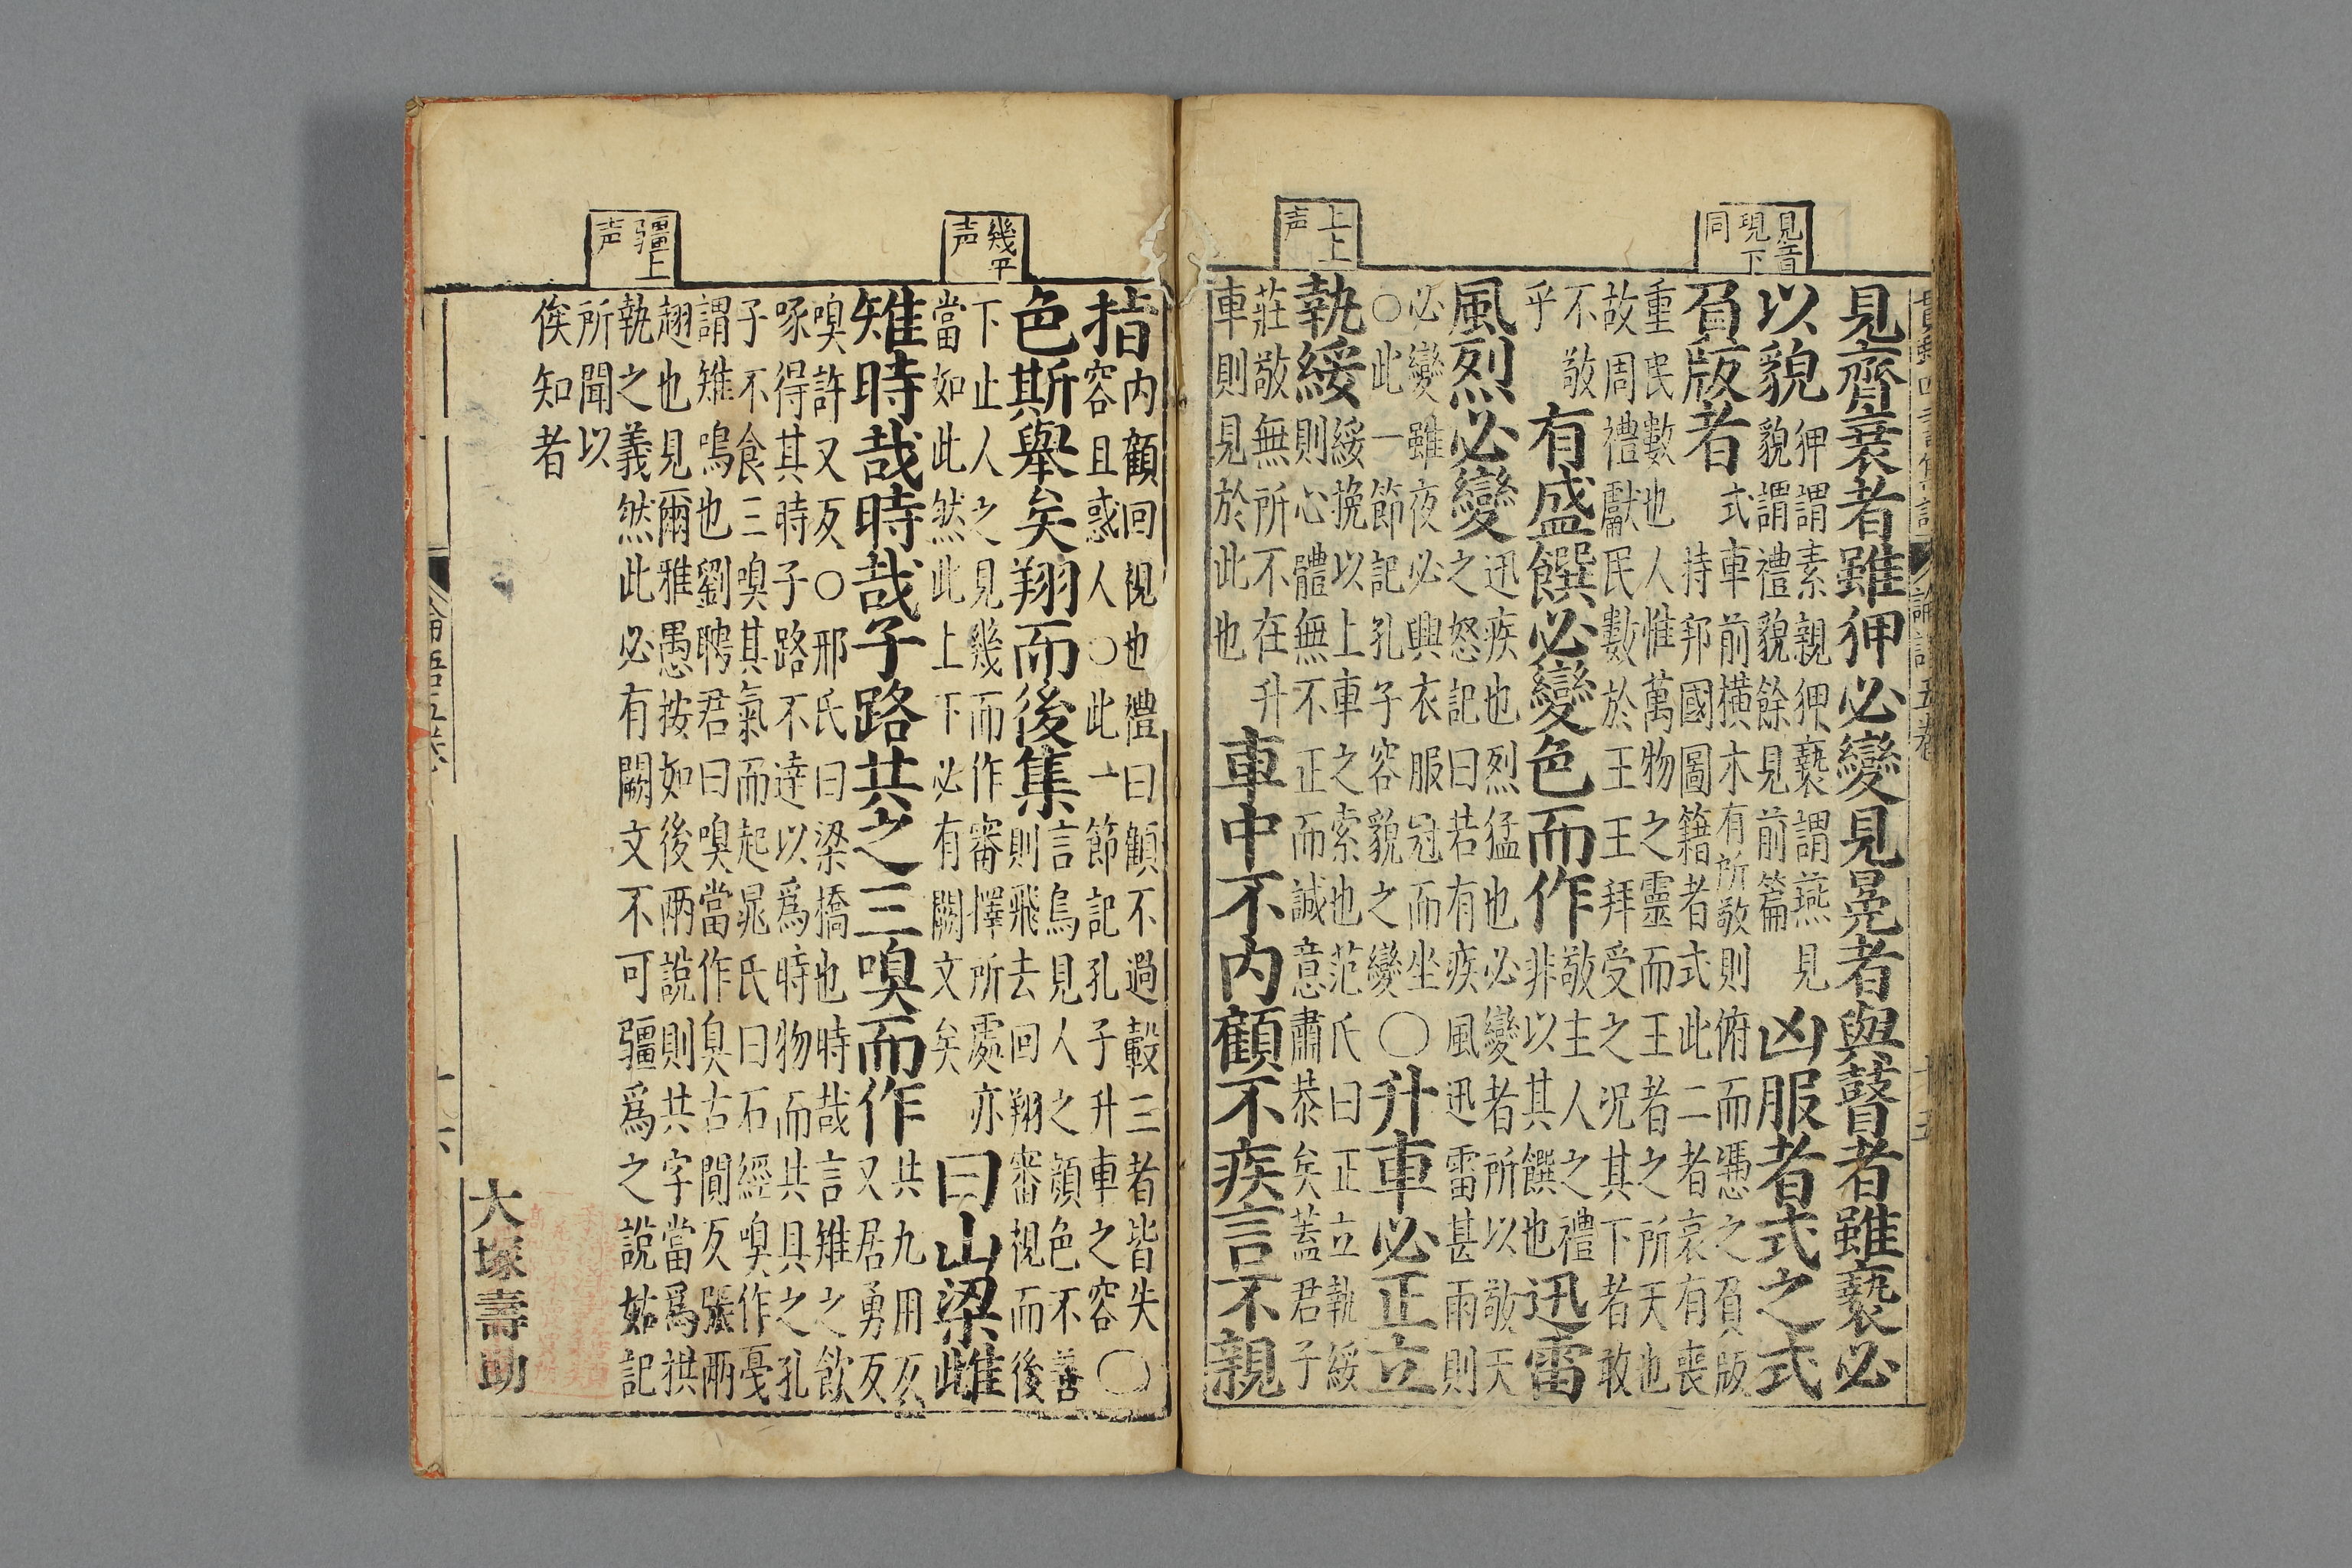 見音
現下
同
上上
声
見齊衰者雖狎必變見冕者與瞽者雖䙝必
以貌
狎謂素親狎䙝謂燕見
貌謂禮貌餘見前篇
凶服者式之式
負版者
式車前橫木有所敬則俯而憑之負版
持邦國圖籍者式此二者哀有喪
重民數也人惟萬物之靈而王者之所天也
故周禮獻民數於王王拜受之況其下者敢
不敬
乎
有盛饌必變色而作
敬主人之禮
非以其饌也
迅雷
風烈必變
迅疾也烈猛也必變者所以敬天
之怒記曰若有疾風迅雷甚雨則
必變雖夜必興衣服冠而坐
○此一節記孔子容貌之變
○升車必正立
執綏
綏挽以上車之索也范氏曰正立執綏
則心體無不正而誠意肅恭矣蓋君子
莊敬無所不在升
車則見於此也
車中不內顧不疾言不親
幾平
声
彊上
声
指
內顧回視也禮曰顧不過轂三者皆失
容且惑人○此一節記孔子升車之容
○
色斯舉矣翔而後集
言鳥見人之顏色不善
則飛去回翔審視而後
下止人之見幾而作審擇所處亦
當如此然此上下必有闕文矣
曰山梁雌
雉時哉時哉子路共之三嗅而作
共九用反
又居勇反
嗅許又反○邢氏曰梁橋也時哉言雉之飲
啄得其時子路不達以爲時物而共具之孔
子不食三嗅其氣而起晁氏曰石經嗅作戛
謂雉鳴也劉聘君曰嗅當作臭古闃反張兩
翅也見爾雅愚按如後兩說則共字當爲拱
執之義然此必有闕文不可彊爲之說姑記
所聞以
俟知者
大塚壽助